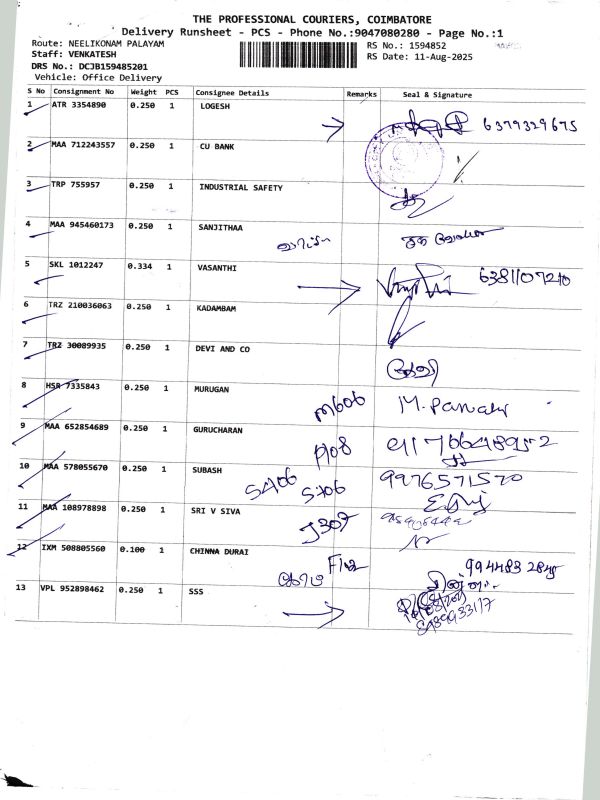 THE PROFESSIONAL COURIERS, COIMBATORE
Delivery Runsheet - PCS - Phone No.:9047080280 - Page No.:1
Route: NEELIKONAM PALAYAM RS No.: 1594852
Staff: VENKATESH RS Date: 11-Aug-2025
DRS No.: DCJB159485201
Vehicle: Office Delivery
S No Consignment No Weight PCS Consignee Details Remarks Seal & Signature
1 ATR 3354890 0.250 1 LOGESH 6379329675
2 MAA 712243557 0.250 1 CU BANK
3 TRP 755957 0.250 1 INDUSTRIAL SAFETY
4 MAA 945460173 0.250 1 SANJITHAA
5 SKL 1012247 0.334 1 VASANTHI 6381107210
6 TRZ 210036063 0.250 1 KADAMBAM
7 TRZ 30089935 0.250 1 DEVI AND CO
8 HSR 7335843 0.250 1 MURUGAN M606
9 MAA 652854689 0.250 1 GURUCHARAN P108
10 MAA 578055670 0.250 1 SUBASH S406 S706 9976571570
11 MAA 108978898 0.250 1 SRI V SIVA J307
12 IXM 508805560 0.100 1 CHINNA DURAI
13 VPL 952898462 0.250 1 SSS